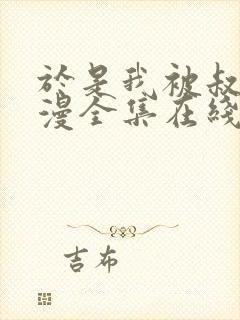 於是我被叔
漫全集在线
吉布